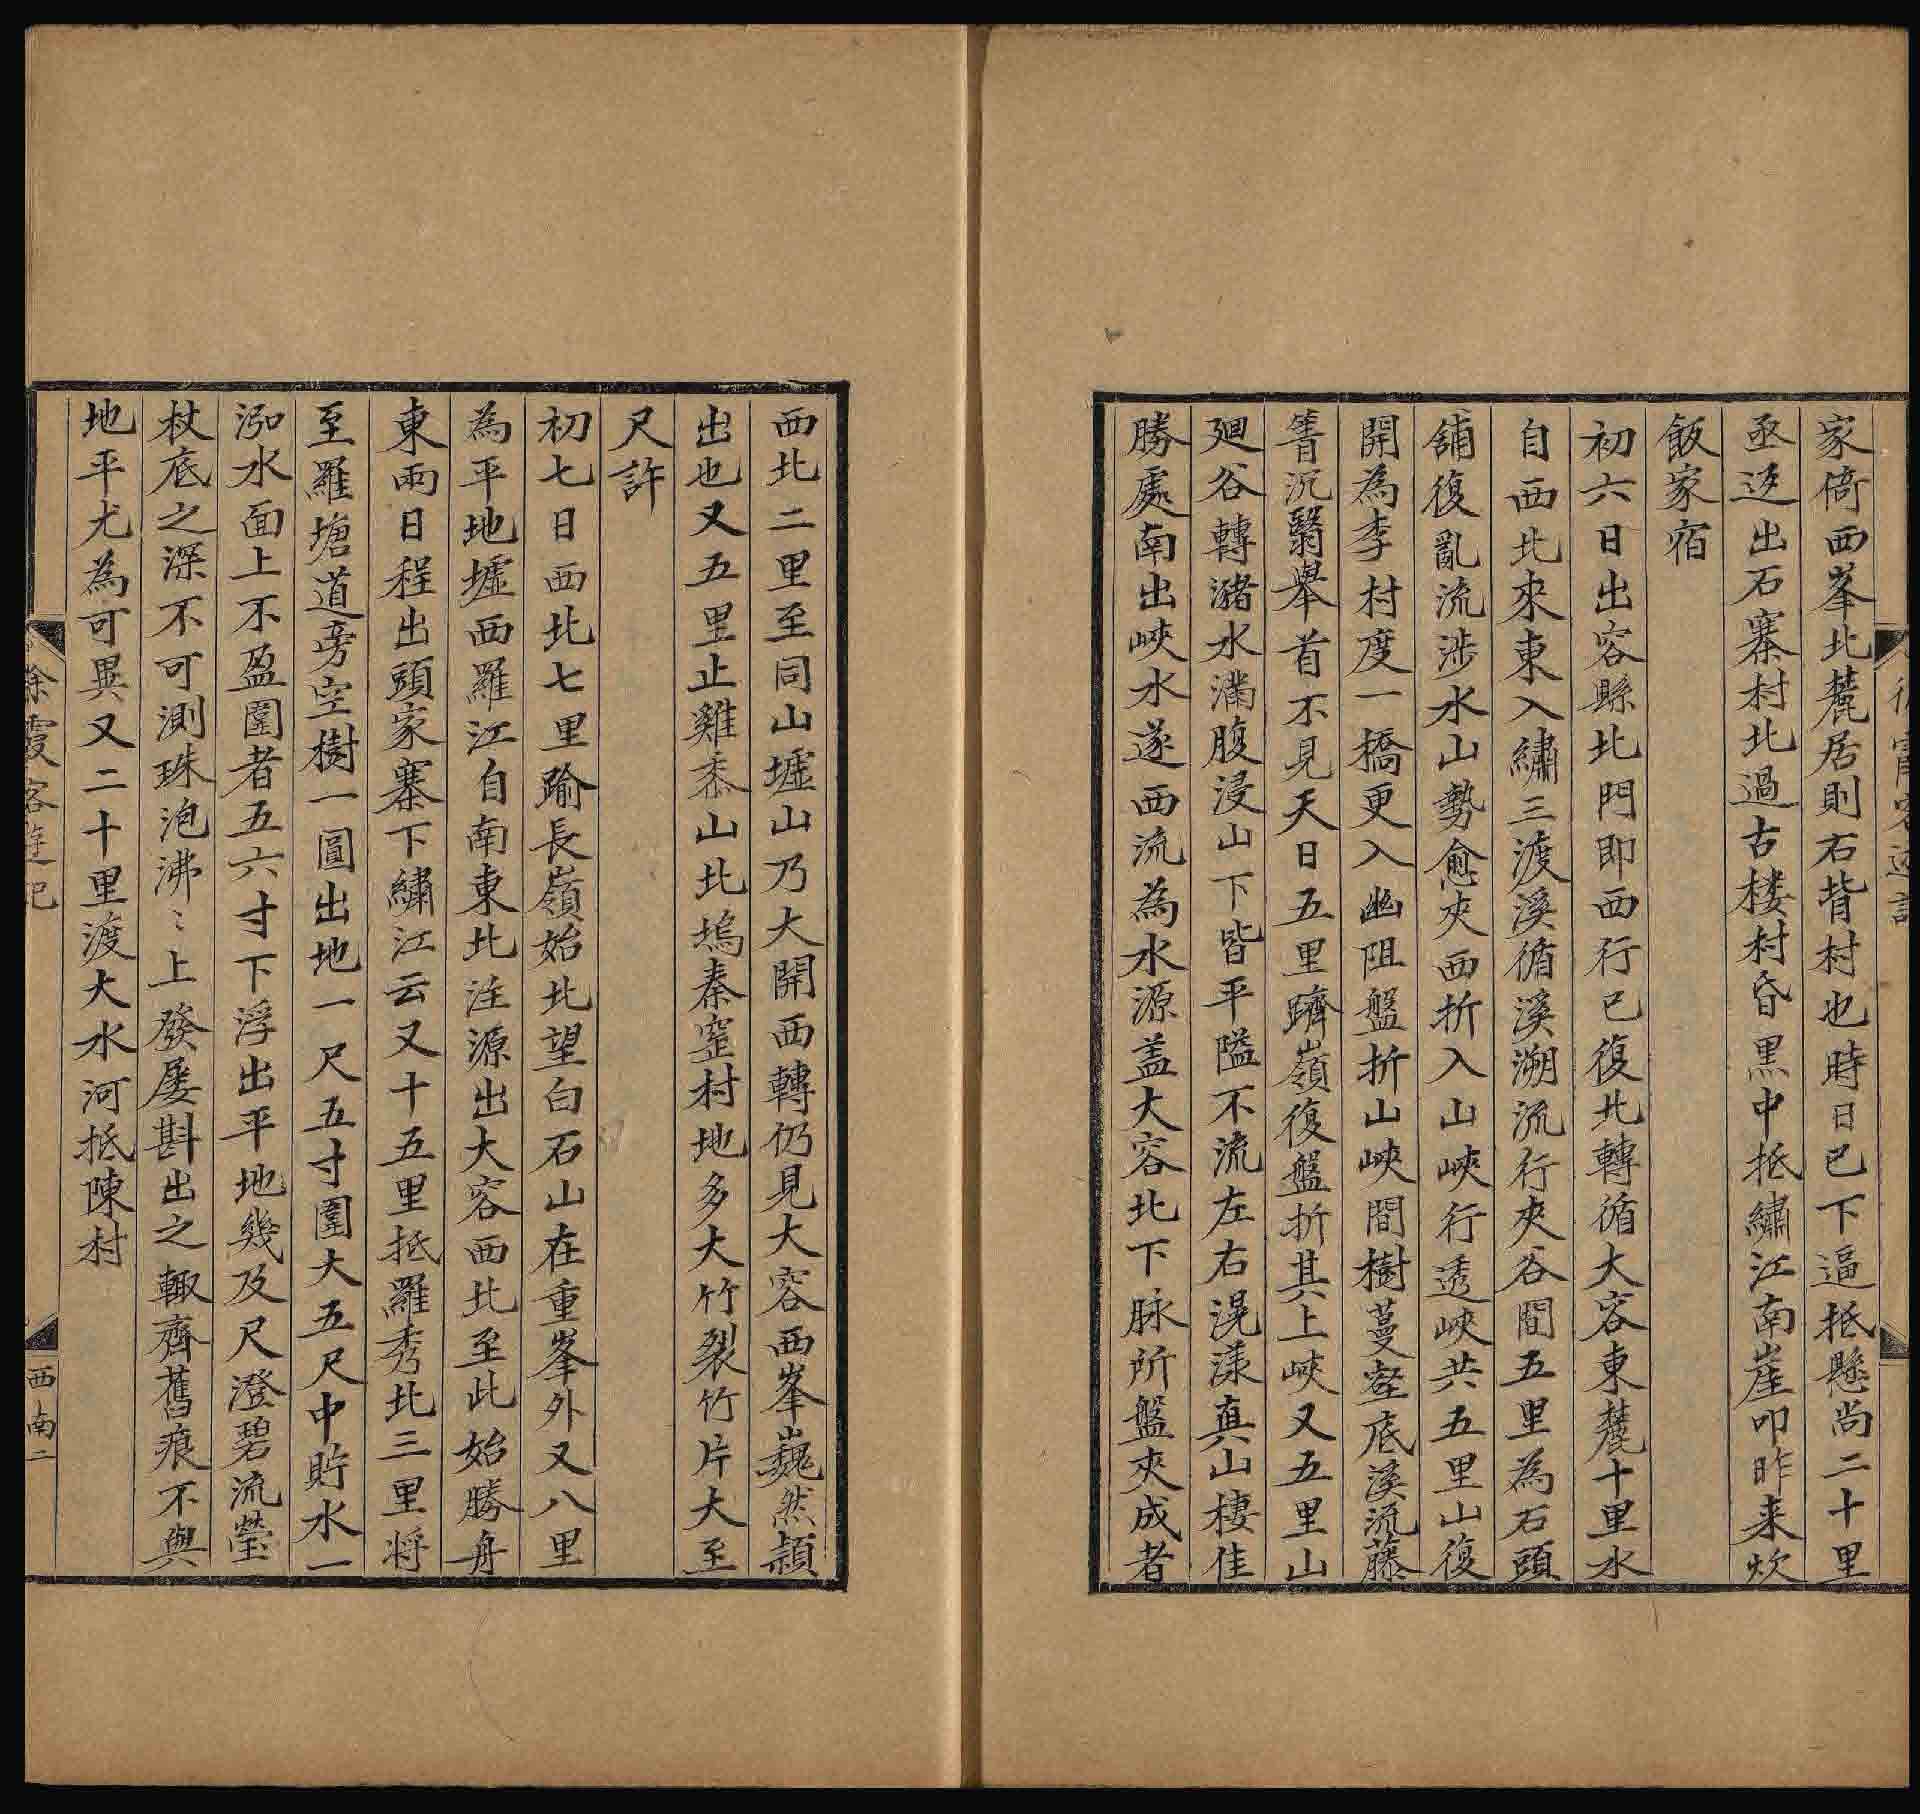 家倚西峯北麓居則石背村也時日已下逼抵懸尚二十里
亟逐出石寨村北過古楼村昏黒中抵繡江南崖叩昨来炊
飯家宿
初六日出容縣北門即西行已復北轉循大容東麓十里水
自西北來東入繡三渡溪循溪溯流行夾谷間五里為石頭
舖復亂流涉水山勢愈夾西折入山峽行透峽共五里山復
開為李村度一橋更入幽阻盤折山峽間樹蔓壑底溪流藤
箐沉翳舉首不見天日五里躋嶺復盤折其上峽又五里山
廻谷轉瀦水滿腹浸山下皆平隘不流左右滉漾真山棲佳
勝處南出峽水遂西流為水源盖大容北下脉所盤夾成者
西北二里至同山墟山乃大開西轉仍見大容西峯巍然頴
出也又五里止雞黍山北塢秦窰村地多大竹裂竹片大至
尺許
初七日西北七里踰長嶺始北望白石山在重峯外又八里
為平地墟西羅江自南東北注源出大容西北至此始勝舟
東兩日程出頭家寨下繡江云又十五里抵羅秀北三里将
至羅塘道旁空樹一圓出地一尺五寸圍大五尺中貯水一
泓水面上不盈圍者五六寸下浮出平地幾及尺澄碧流瑩
杖底之深不可測珠泡沸〻上發屡斟出之輙齊舊痕不與
地平尤為可異又二十里渡大水河抵陳村
徐霞客遊記
西南二